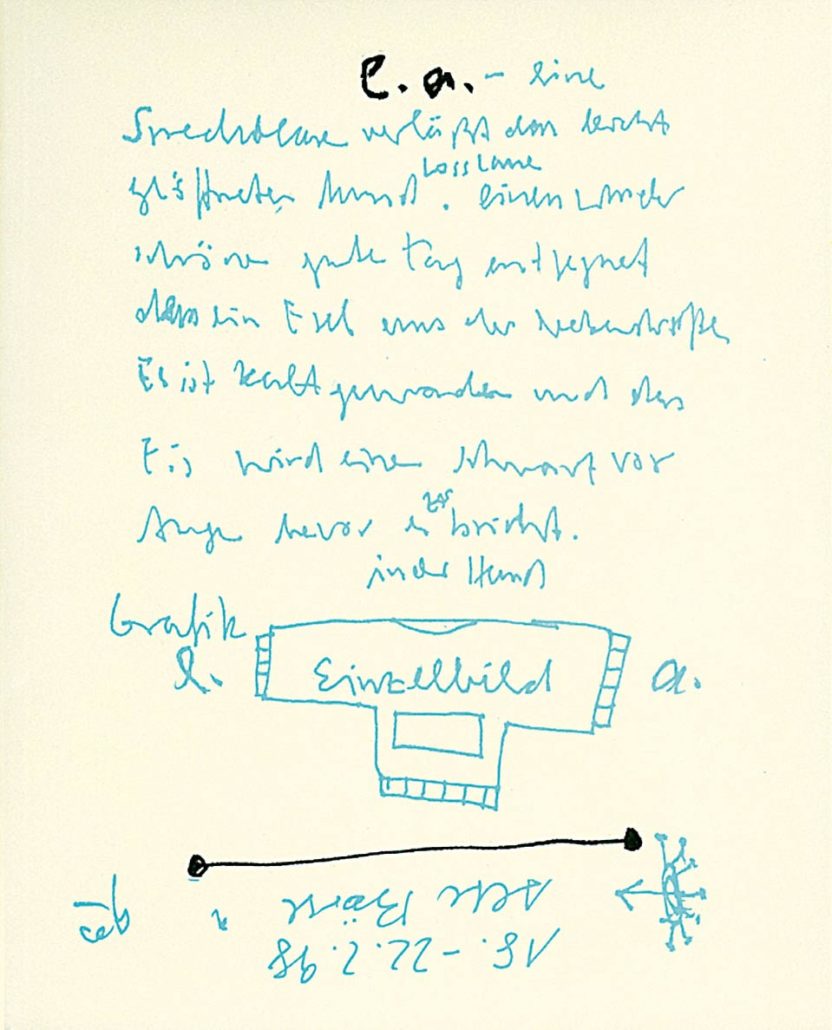 e.a. - eine
Sprechblase verläßt den leicht
geöffneten Mund.
einen wunder
schöne gute Tag entgegnet
dem ein Esel aus der Nebenstraße
Es ist kalt geworden und das
Eis wird eine vor
Auge bevor es bricht.
in der Hand
Grafik
e. Einzelbild a.
18.-22.2.98